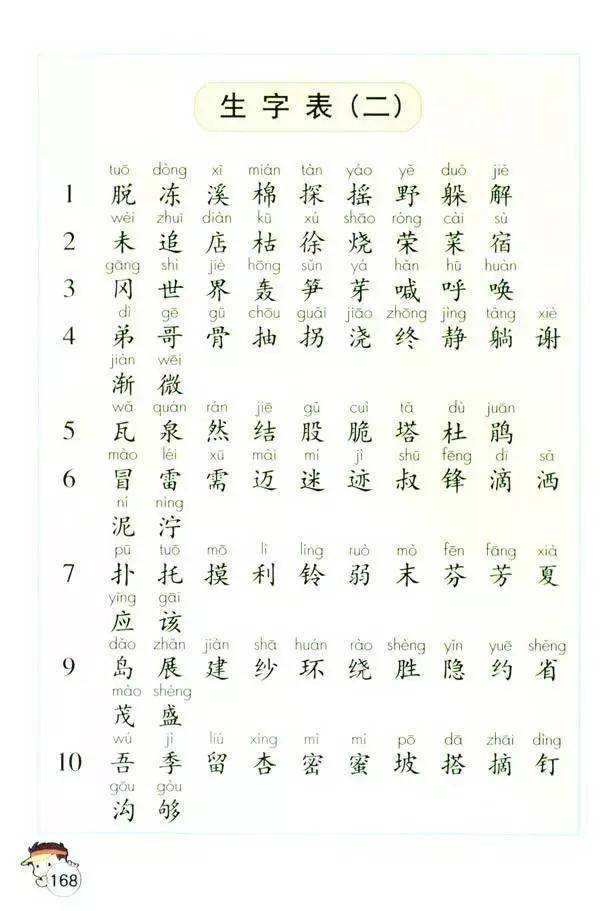 生字表（二）
tuō dòng xī mián tàn yáo yě duǒ jiě
1 脱 冻 溪 棉 探 摇 野 躲 解
wèi zhuī diàn kū xú shāo róng cài sù
2 未 追 店 枯 徐 烧 荣 菜 宿
gāng shì jiè hōng sǔn yá hǎn hū huàn
3 冈 世 界 轰 笋 芽 喊 呼 唤
dì gē gǔ chōu guǎi jiāo zhōng jìng tǎng xiè
4 弟 哥 骨 抽 拐 浇 终 静 躺 谢
jiàn wēi
渐 微
wǎ quán rán jiē gǔ cuì tǎ dù juān
5 瓦 泉 然 结 股 脆 塔 杜 鹃
mào léi xū mài mí jì shū fēng dī sǎ
6 冒 雷 需 迈 迷 迹 叔 锋 滴 洒
ní nìng
泥 泞
pū tuō mō lì líng ruò mò fēn fāng xià
7 扑 托 摸 利 铃 弱 末 芬 芳 夏
yīng gāi
应 该
dǎo zhǎn jiàn shā huán rào shèng yǐn yuē shěng
9 岛 展 建 纱 环 绕 胜 隐 约 省
mào shèng
茂 盛
wú jì liú xìng mì mì pō dā zhāi dīng
10 吾 季 留 杏 密 蜜 坡 搭 摘 钉
gōu gòu
沟 够
168